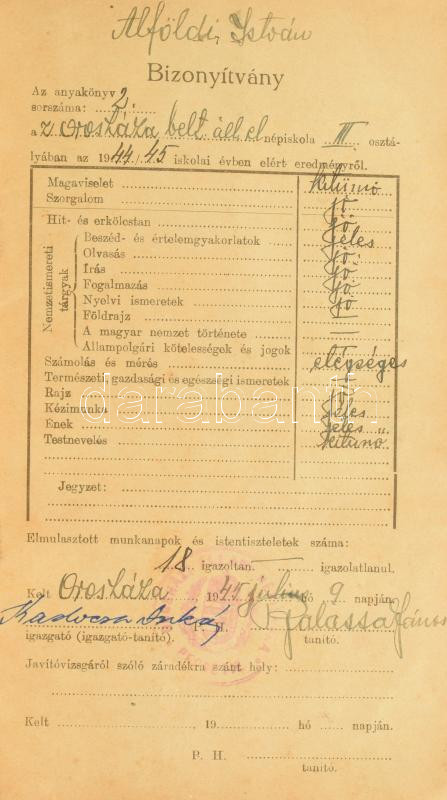 Alföldi István
Bizonyítvány
Az anyakönyv
sorszáma: 2.
a z Orosháza belt. áll. el népiskola III osztá-
lyában az 1944/45 iskolai évben elért eredményről.
Magaviselet kitünő
Szorgalom jó
Hit- és erkölcstan jó
Nemzetismereti tárgyak
Beszéd- és értelemgyakorlatok jeles
Olvasás jó
Írás jó
Fogalmazás jó
Nyelvi ismeretek jó
Földrajz —
A magyar nemzet története —
Állampolgári kötelességek és jogok —
Számolás és mérés elégséges
Természeti, gazdasági és egészségi ismeretek jó
Rajz jó
Kézimunka jeles
Ének jeles
Testnevelés kitünő
Jegyzet:
darabanth
Elmulasztott munkanapok és istentiszteletek száma:
18 igazoltan. — igazolatlanul.
Kelt Orosháza 1945 július hó 9 napján.
P. H. Galassa János
igazgató (igazgató-tanító). tanító.
Javítóvizsgáról szóló záradékra szánt hely:
Kelt 19 hó napján.
P. H.
tanító.